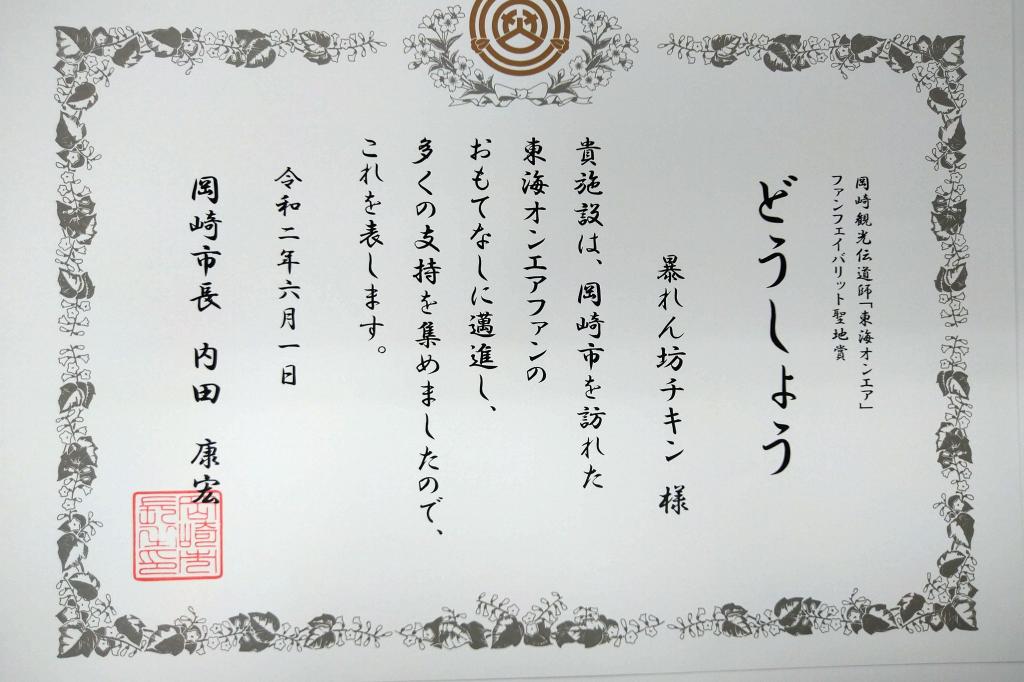 岡崎観光伝道師「東海オンエア」
ファンフェイバリット聖地賞
どうしょう
暴れん坊チキン 様
貴施設は、岡崎市を訪れた
東海オンエアファンの
おもてなしに邁進し、
多くの支持を集めましたので、
これを表します。
令和二年六月一日
岡崎市長 内田 康宏
岡崎市
長之印